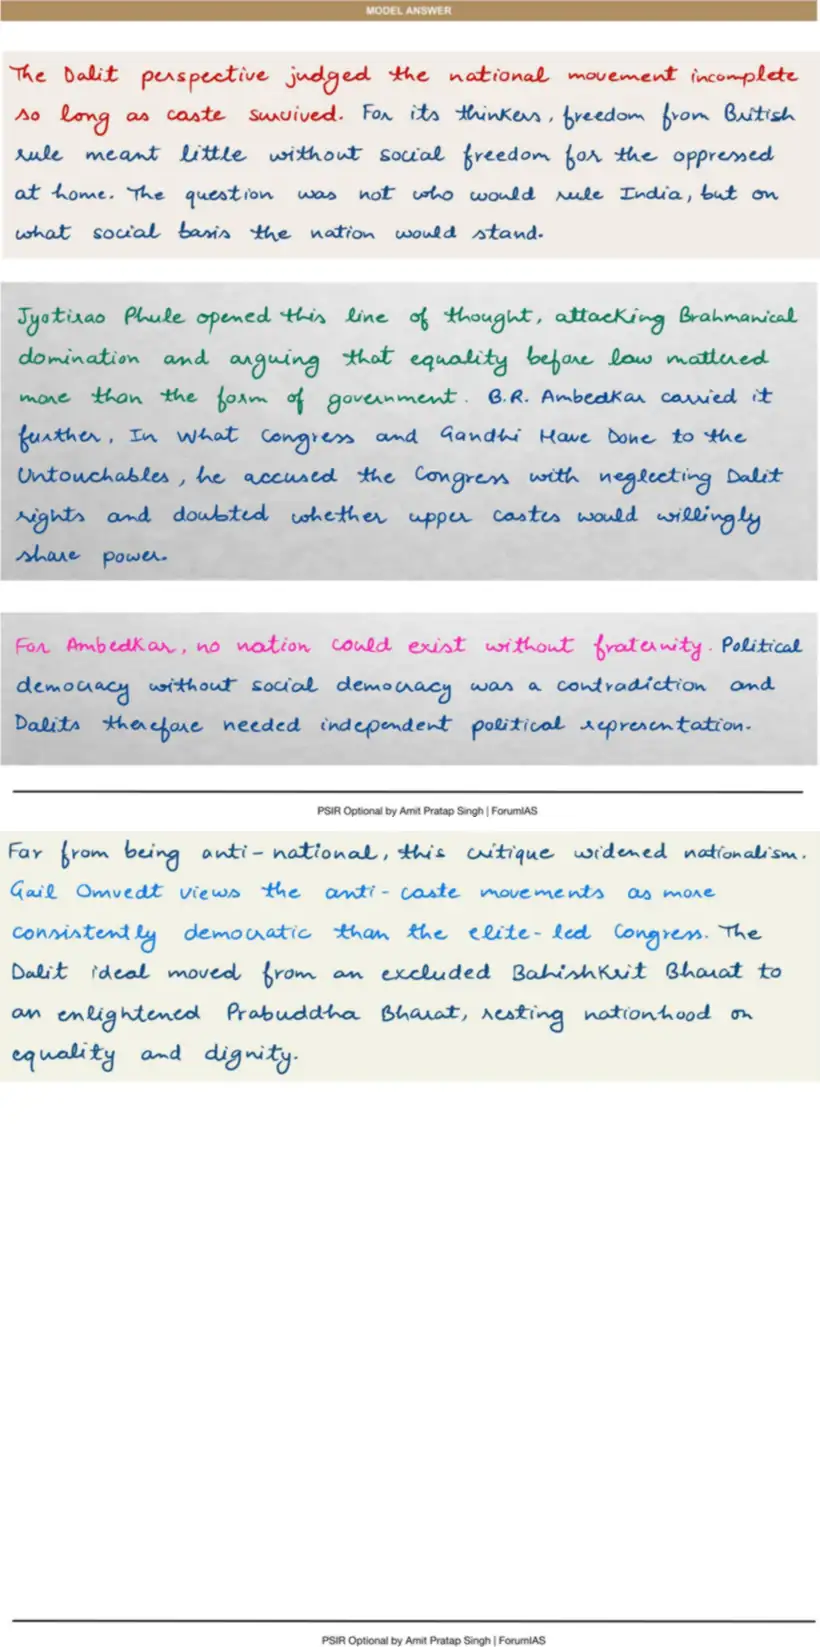 MODEL ANSWER
The Dalit perspective judged the national movement incomplete
so long as caste survived. For its thinkers, freedom from British
rule meant little without social freedom for the oppressed
at home. The question was not who would rule India, but on
what social basis the nation would stand.
Jyotirao Phule opened this line of thought, attacking Brahmanical
domination and arguing that equality before law mattered
more than the form of government. B.R. Ambedkar carried it
further, In What Congress and Gandhi Have Done to the
Untouchables, he accused the Congress with neglecting Dalit
rights and doubted whether upper castes would willingly
share power.
For Ambedkar, no nation could exist without fraternity. Political
democracy without social democracy was a contradiction and
Dalits therefore needed independent political representation.
PSIR Optional by Amit Pratap Singh | ForumIAS
Far from being anti-national, this critique widened nationalism.
Gail Omvedt views the anti-caste movements as more
consistently democratic than the elite-led Congress. The
Dalit ideal moved from an excluded Bahishkrit Bharat to
an enlightened Prabuddha Bharat, resting nationhood on
equality and dignity.
PSIR Optional by Amit Pratap Singh | ForumIAS